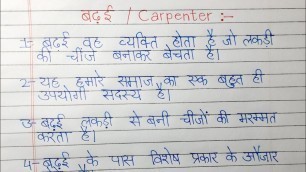 बढ़ई / Carpenter :-
1- बढ़ई वह व्यक्ति होता है जो लकड़ी
की चीजें बनाकर बेचता है।
2- यह हमारे समाज का एक बहुत ही
उपयोगी सदस्य है।
3- बढ़ई लकड़ी से बनी चीजों की मरम्मत
करता है।
4- बढ़ई के पास विशेष प्रकार के औजार